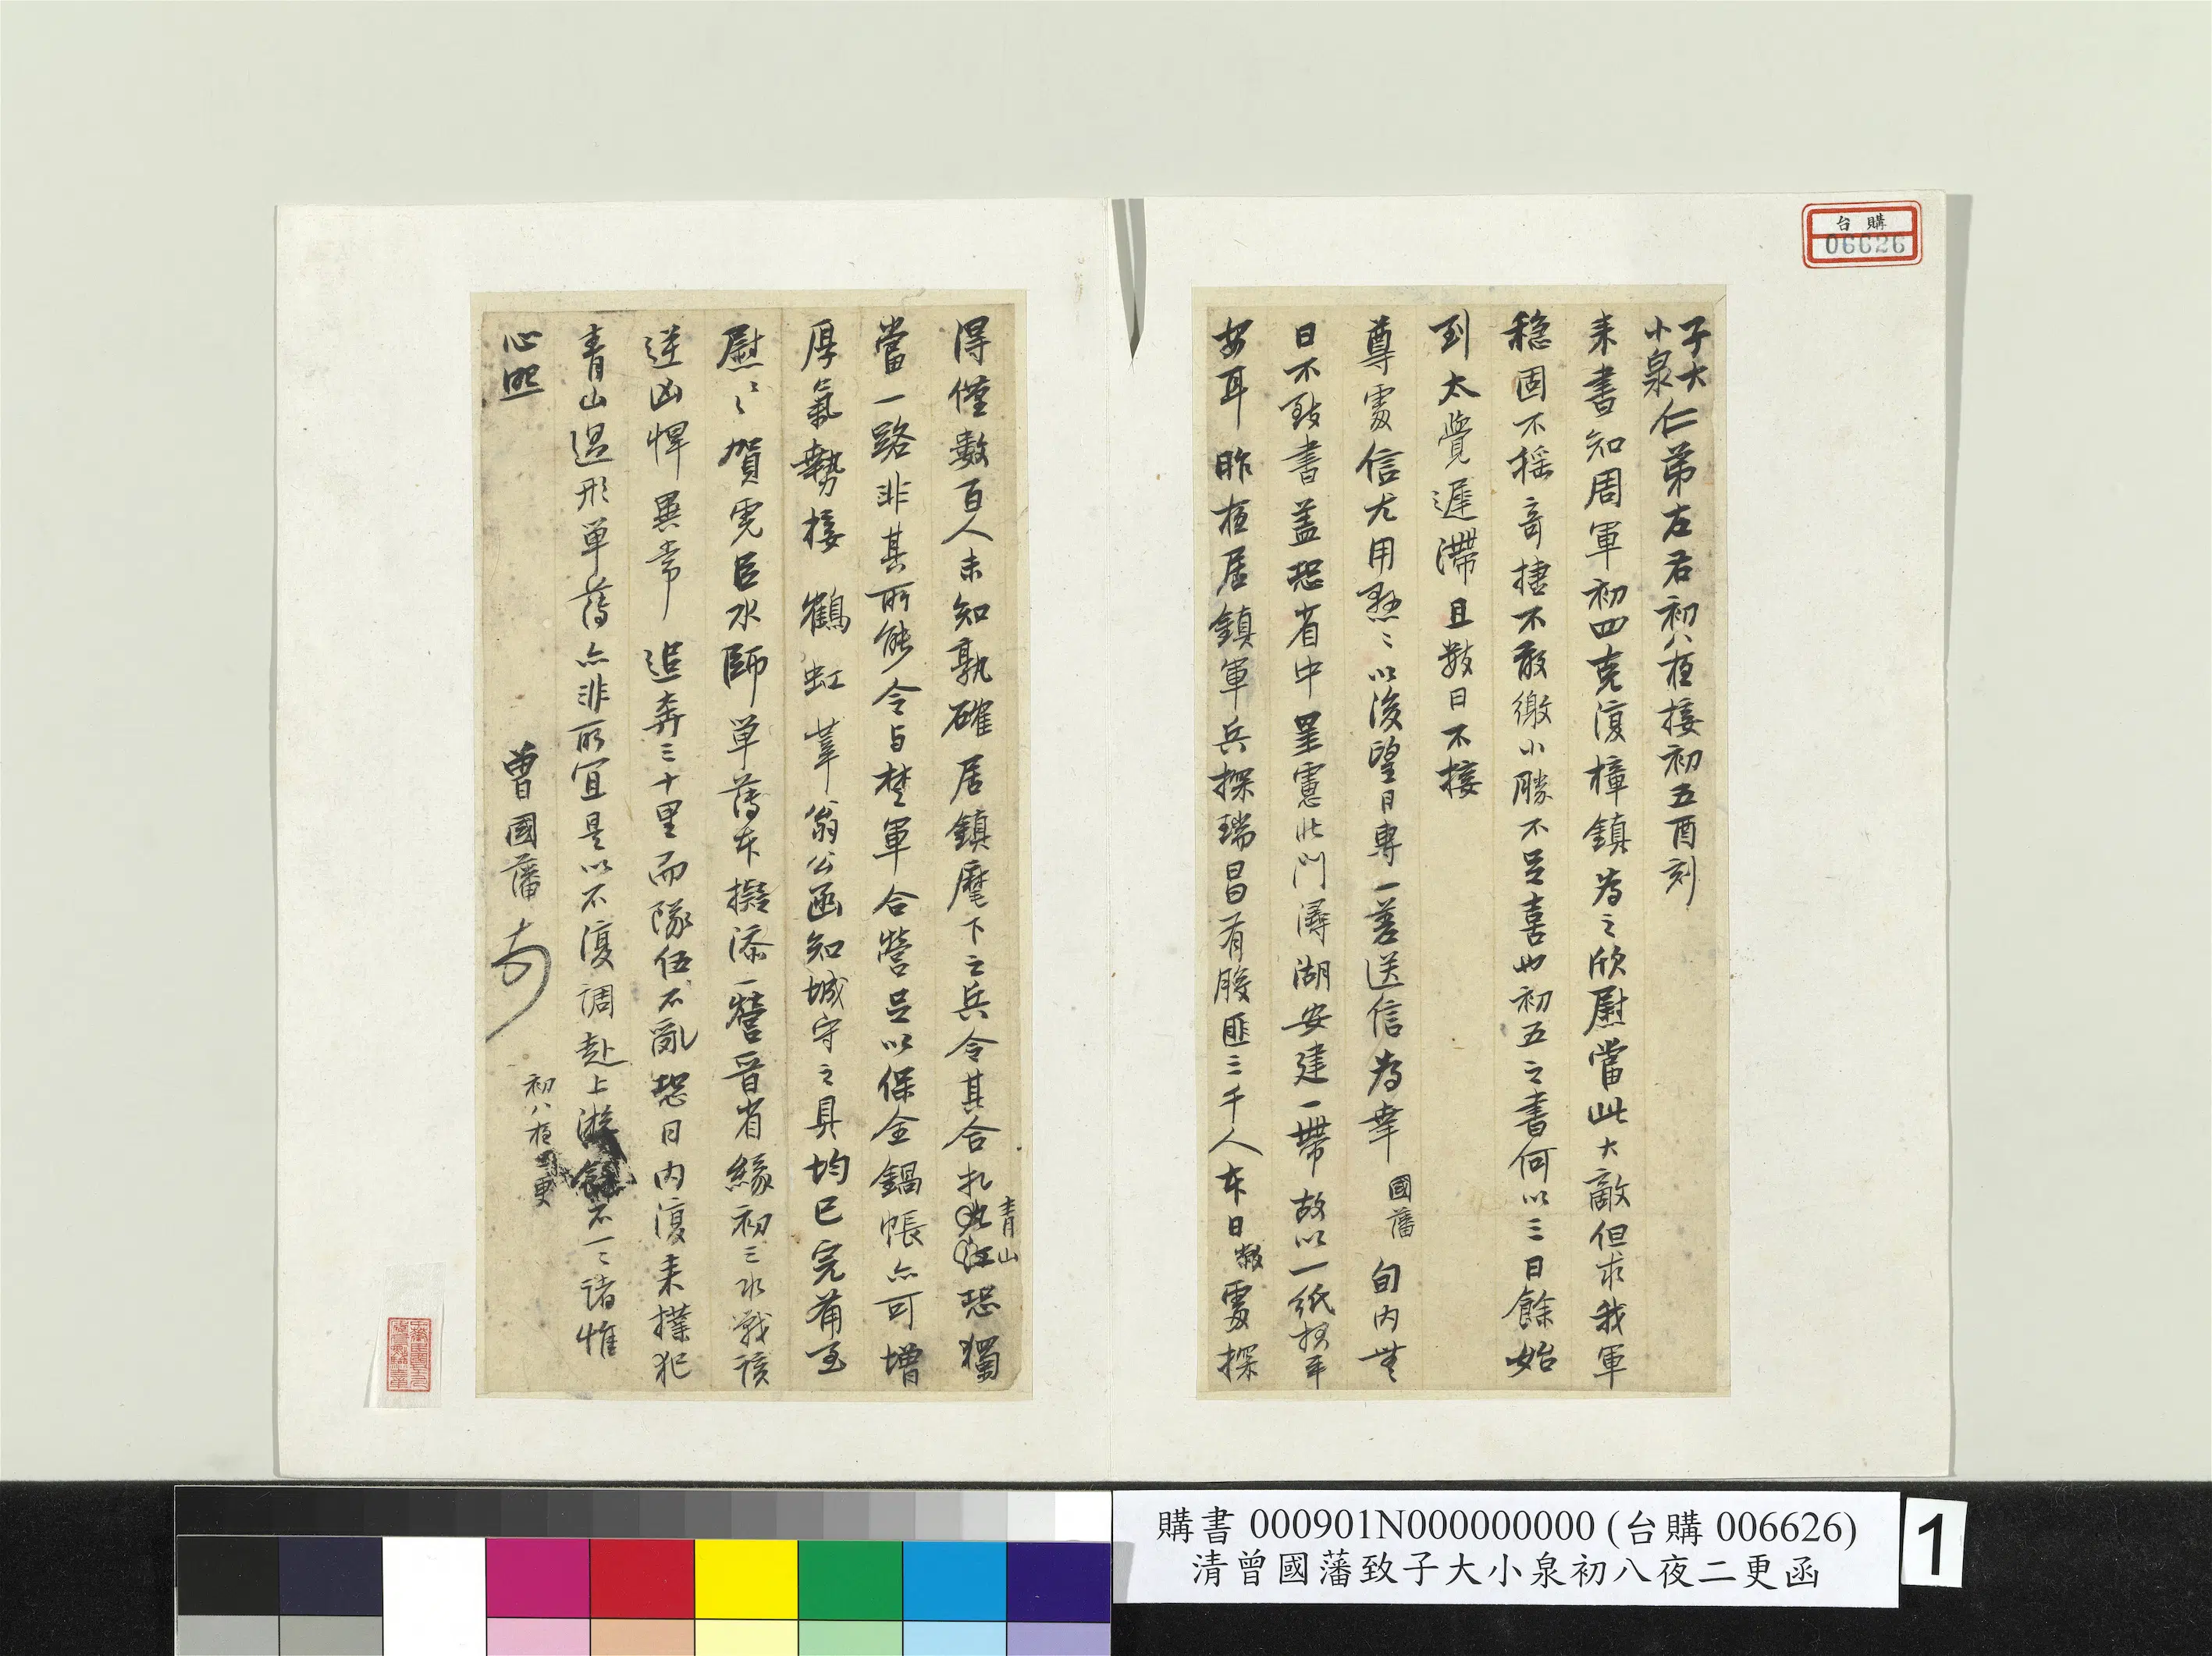 台購
06626
子大
小泉仁弟左右初八夜接初五酉刻
来書知周軍初四克復樟鎮為之欣慰當此大敵但求我軍
穩固不搖奇捷不敢徼小勝不足喜也初五之書何以三日餘始
到太覺遲滯且數日不接
尊處信尤用懸〻以後望日專一差送信為幸國藩旬内無
日不致書蓋恐省中罣慮北門潯湖安建一帶故以一紙報平
安耳昨夜居鎮軍兵探瑞昌有股匪三千人本日敝處探
得僅數百人未知孰確居鎮麾下之兵令其合扎青山恐獨
當一路非其所能令與楚軍合營足以保全鍋帳亦可增
厚氣勢接鶴虹葦翁公函知城守之具均已完備至
慰〻賀虎臣水師單薄本擬添一營晉省緣初三水戰該
逆凶悍異常追奔三十里而隊伍不亂恐日内復来撲犯
青山過形單薄亦非所宜是以不復調赴上游餘不一〻諸惟
心照
曾國藩
初八夜二更
購書 000901N000000000 (台購 006626)
清曾國藩致子大小泉初八夜二更函
1